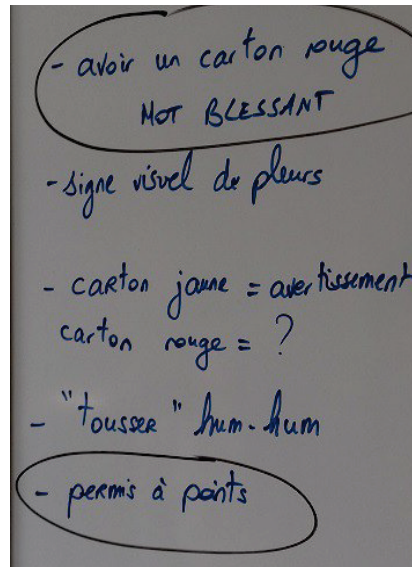 - avoir un carton rouge
MOT BLESSANT
- signe visuel de pleurs
- carton jaune = avertissement
carton rouge = ?
- "tousser" hum-hum
- permis à points